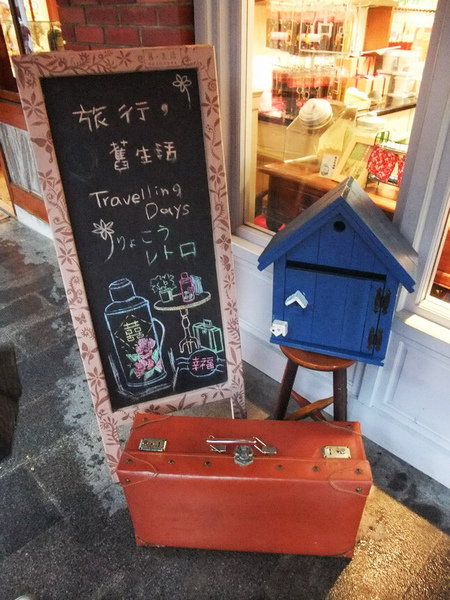 旅行,
舊生活
Travelling
Days
りょこう
レトロ
囍
幸福